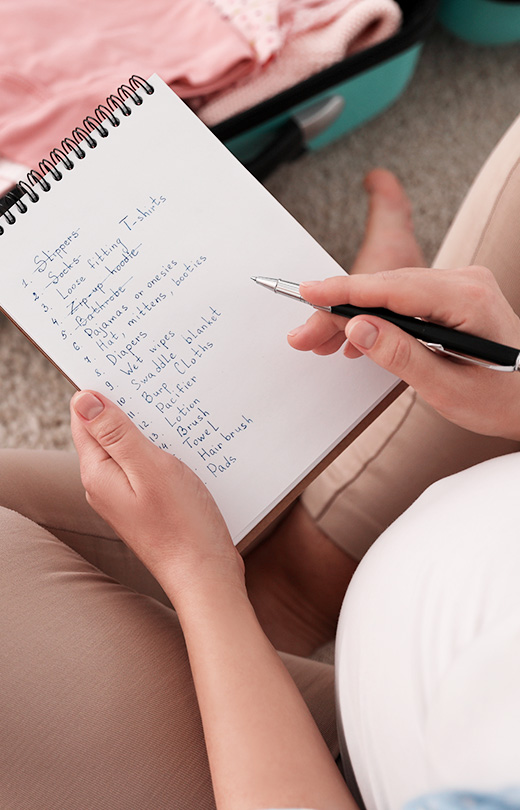 1. Slippers
2. Socks
3. Loose fitting T-shirts
4. Zip-up hoodie
5. Bathrobe
6 Pajamas or onesies
7. Hat, mittens, booties
8. Diapers
9. Wet wipes
10. Swaddle blanket
11. Burp Cloths
12. Pacifier
13. Lotion
14. Brush
Towel
Hairbrush
Pads